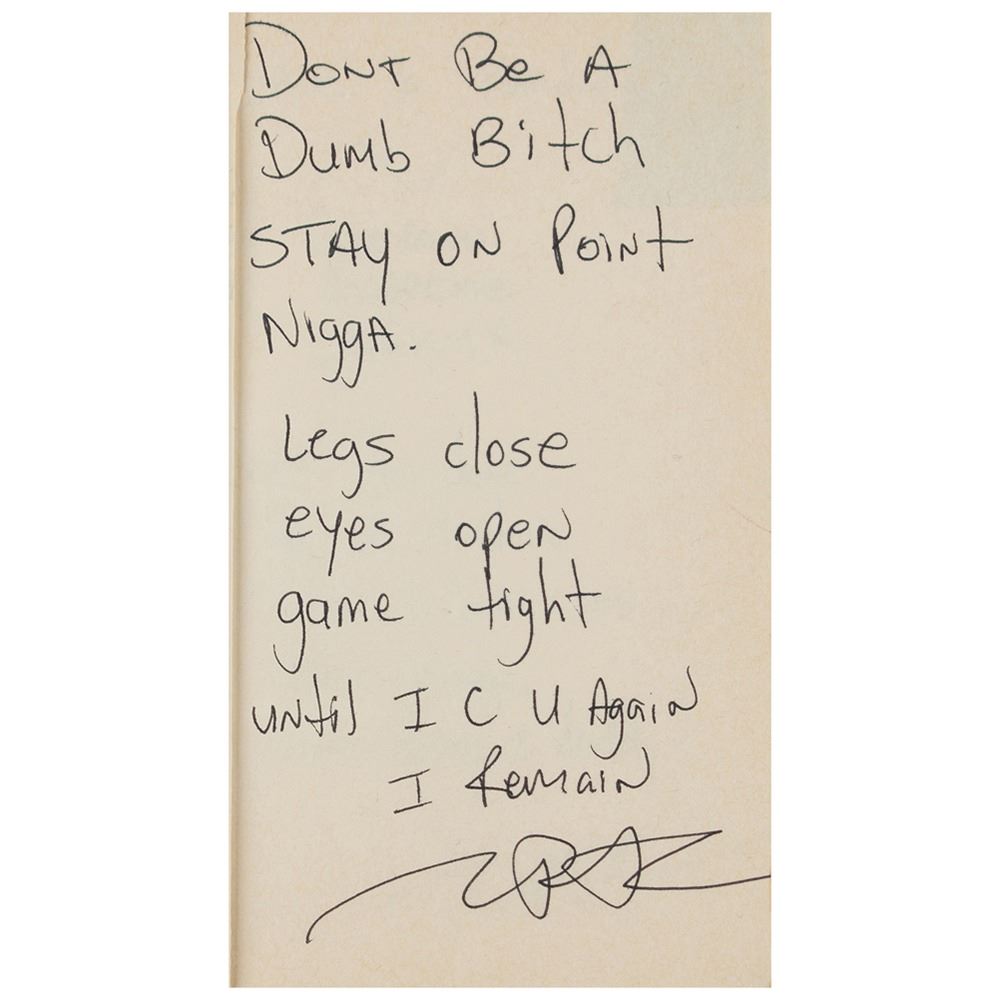 Dont Be A
Dumb Bitch
STAY ON Point
Nigga.
Legs close
eyes open
game tight
until I C U Again
I Remain